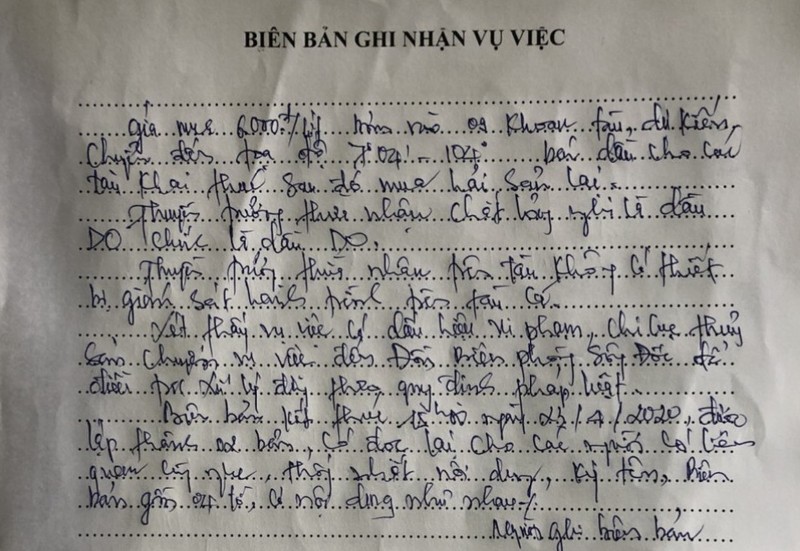 BIÊN BẢN GHI NHẬN VỤ VIỆC
giá mua 6.000đ/lít bơm vào 02 khoan tàu, dự kiến,
chuyển đến tọa độ 7°04' - 104° bán dầu cho các
tàu khai thác sau đó mua hải sản lại.
Thuyền trưởng thừa nhận chất lỏng nghi là dầu
DO chính là dầu DO.
Thuyền trưởng thừa nhận trên tàu không có thiết
bị giám sát hành trình trên tàu cá.
Xét thấy vụ việc có dấu hiệu vi phạm, chi cục thủy
sản chuyển vụ việc đến Đồn Biên phòng Sông Đốc để
điều tra xử lý đúng theo quy định pháp luật.
Biên bản kết thúc 15h00 ngày 23/4/2020, được
lập thành 02 bản, có đọc lại cho các người có liên
quan cùng nghe, thống nhất nội dung, ký tên, Biên
bản gồm 04 tờ, có nội dung như nhau./.
Người ghi biên bản